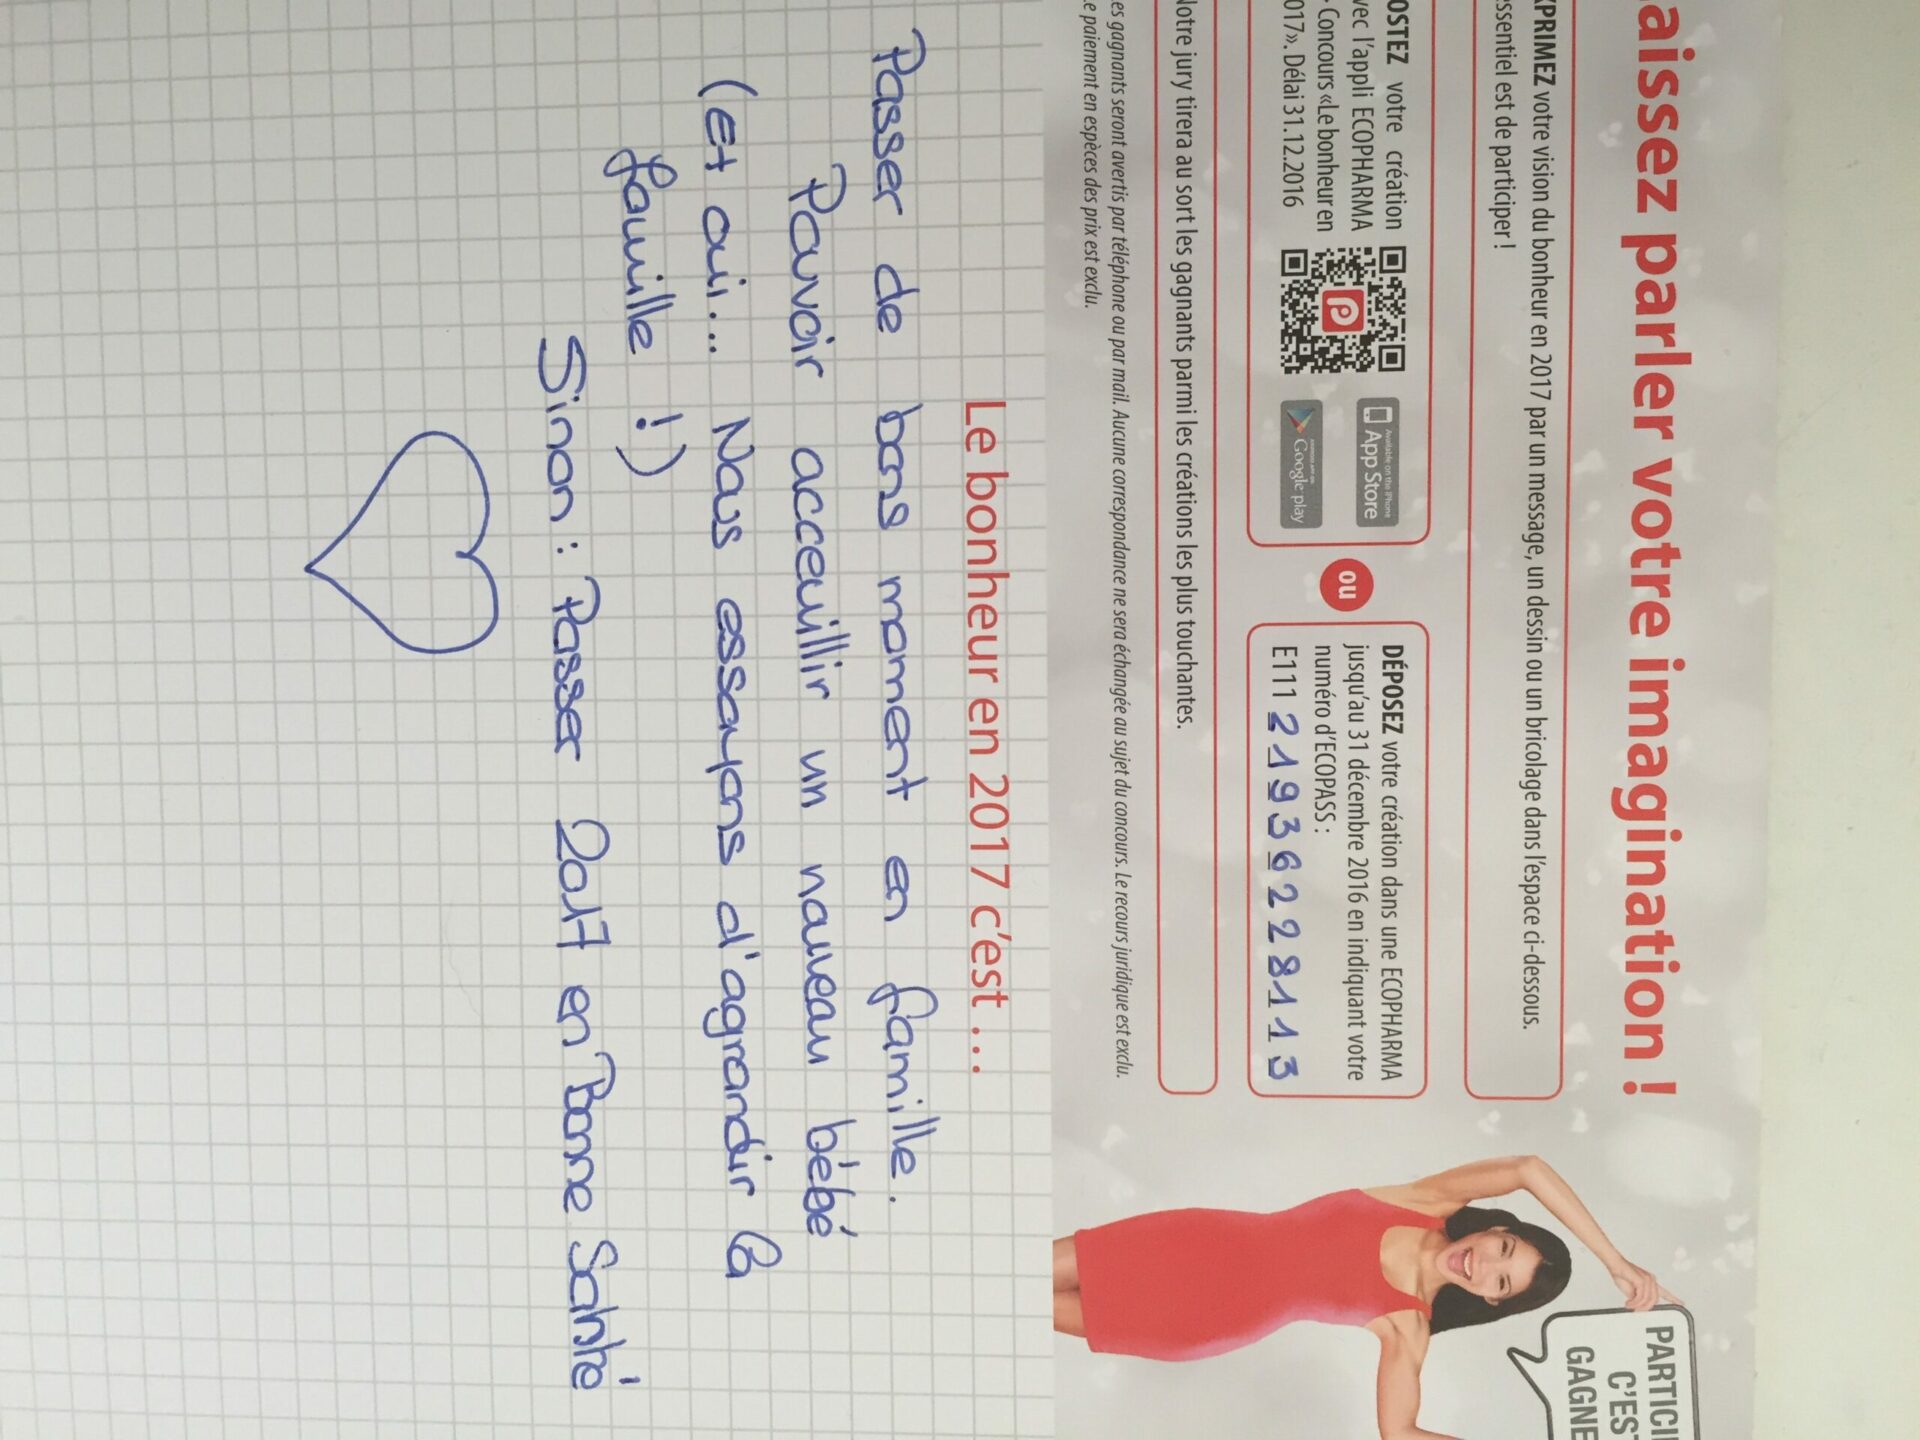 aissez parler votre imagination !
XPRIMEZ votre vision du bonheur en 2017 par un message, un dessin ou un bricolage dans l'espace ci-dessous.
essentiel est de participer !
OSTEZ votre création
vec l'appli ECOPHARMA
Concours «Le bonheur en
017». Délai 31.12.2016
Available on the iPhone
App Store
Google play
ou
DÉPOSEZ votre création dans une ECOPHARMA
jusqu'au 31 décembre 2016 en indiquant votre
numéro d'ECOPASS :
E111 21936228113
Notre jury tirera au sort les gagnants parmi les créations les plus touchantes.
es gagnants seront avertis par téléphone ou par mail. Aucune correspondance ne sera échangée au sujet du concours. Le recours juridique est exclu.
e paiement en espèces des prix est exclu.
PARTICI
C'EST
GAGNE
Le bonheur en 2017 c'est ...
Passer de bons moment en famille.
Pouvoir acceuillir un nouveau bébé
(Et oui... Nous essayons d'agrandir la
famille !)
Sinon : Passer 2017 en Bonne Santé